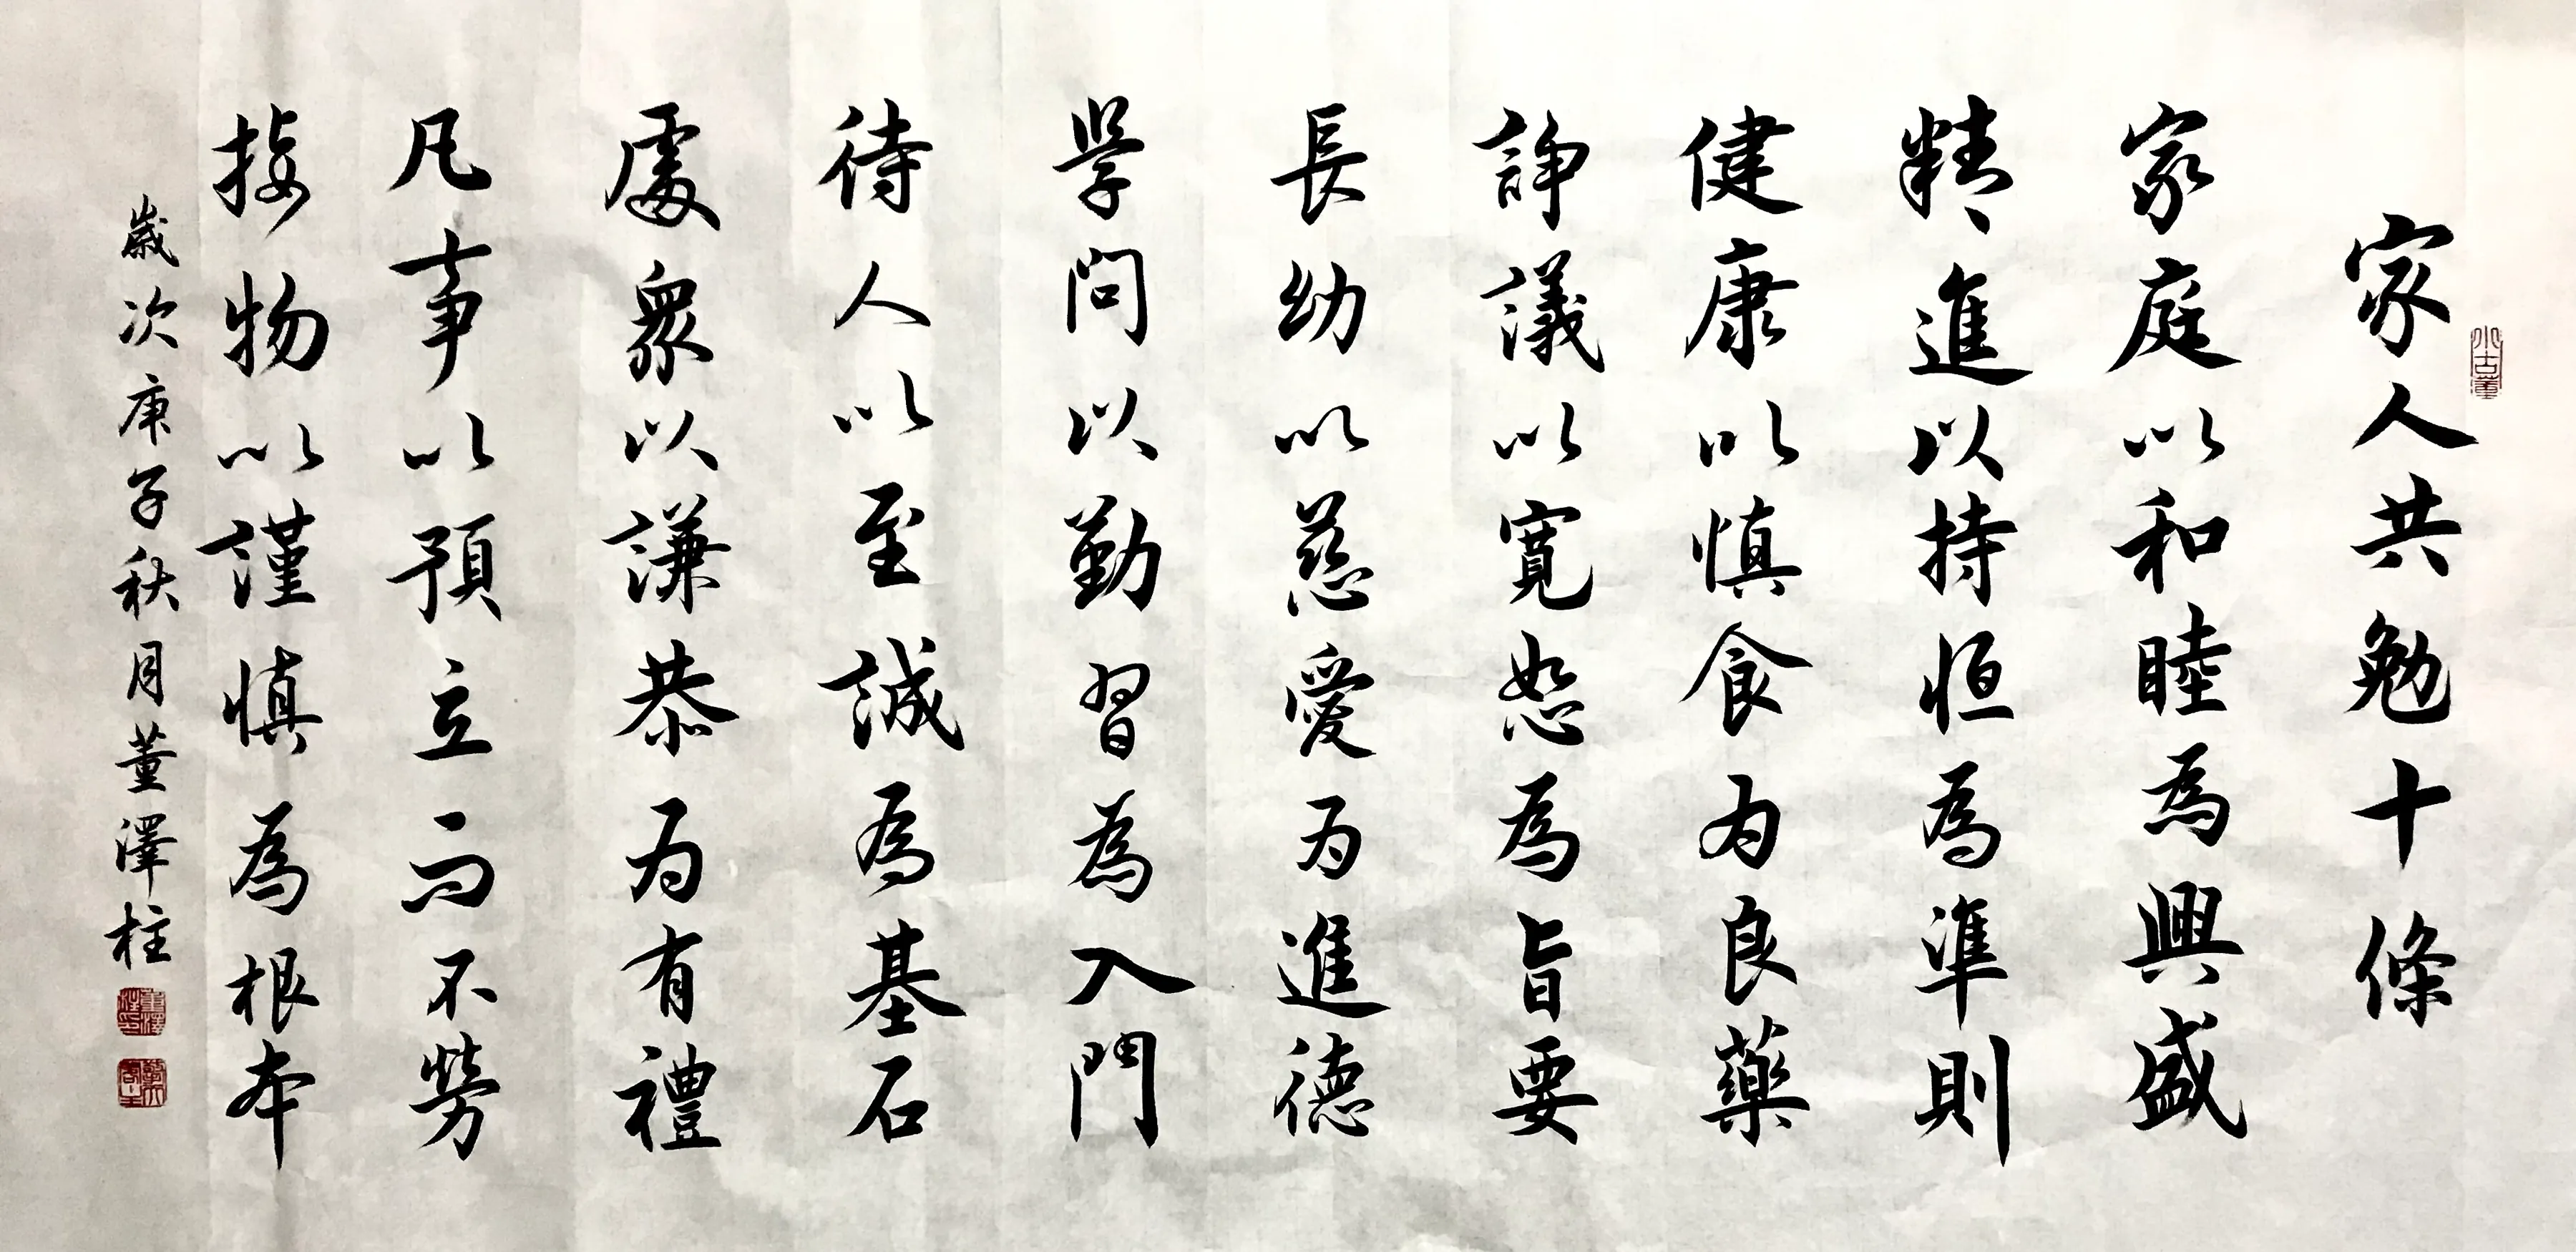 家人共勉十條
家庭以和睦為興盛
精進以持恒為準則
健康以慎食为良藥
諍議以寬恕為旨要
長幼以慈愛为進德
學問以勤習為入門
待人以至誠為基石
處眾以謙恭为有禮
凡事以預立而不勞
接物以謹慎為根本
歲次庚子秋月董澤柱